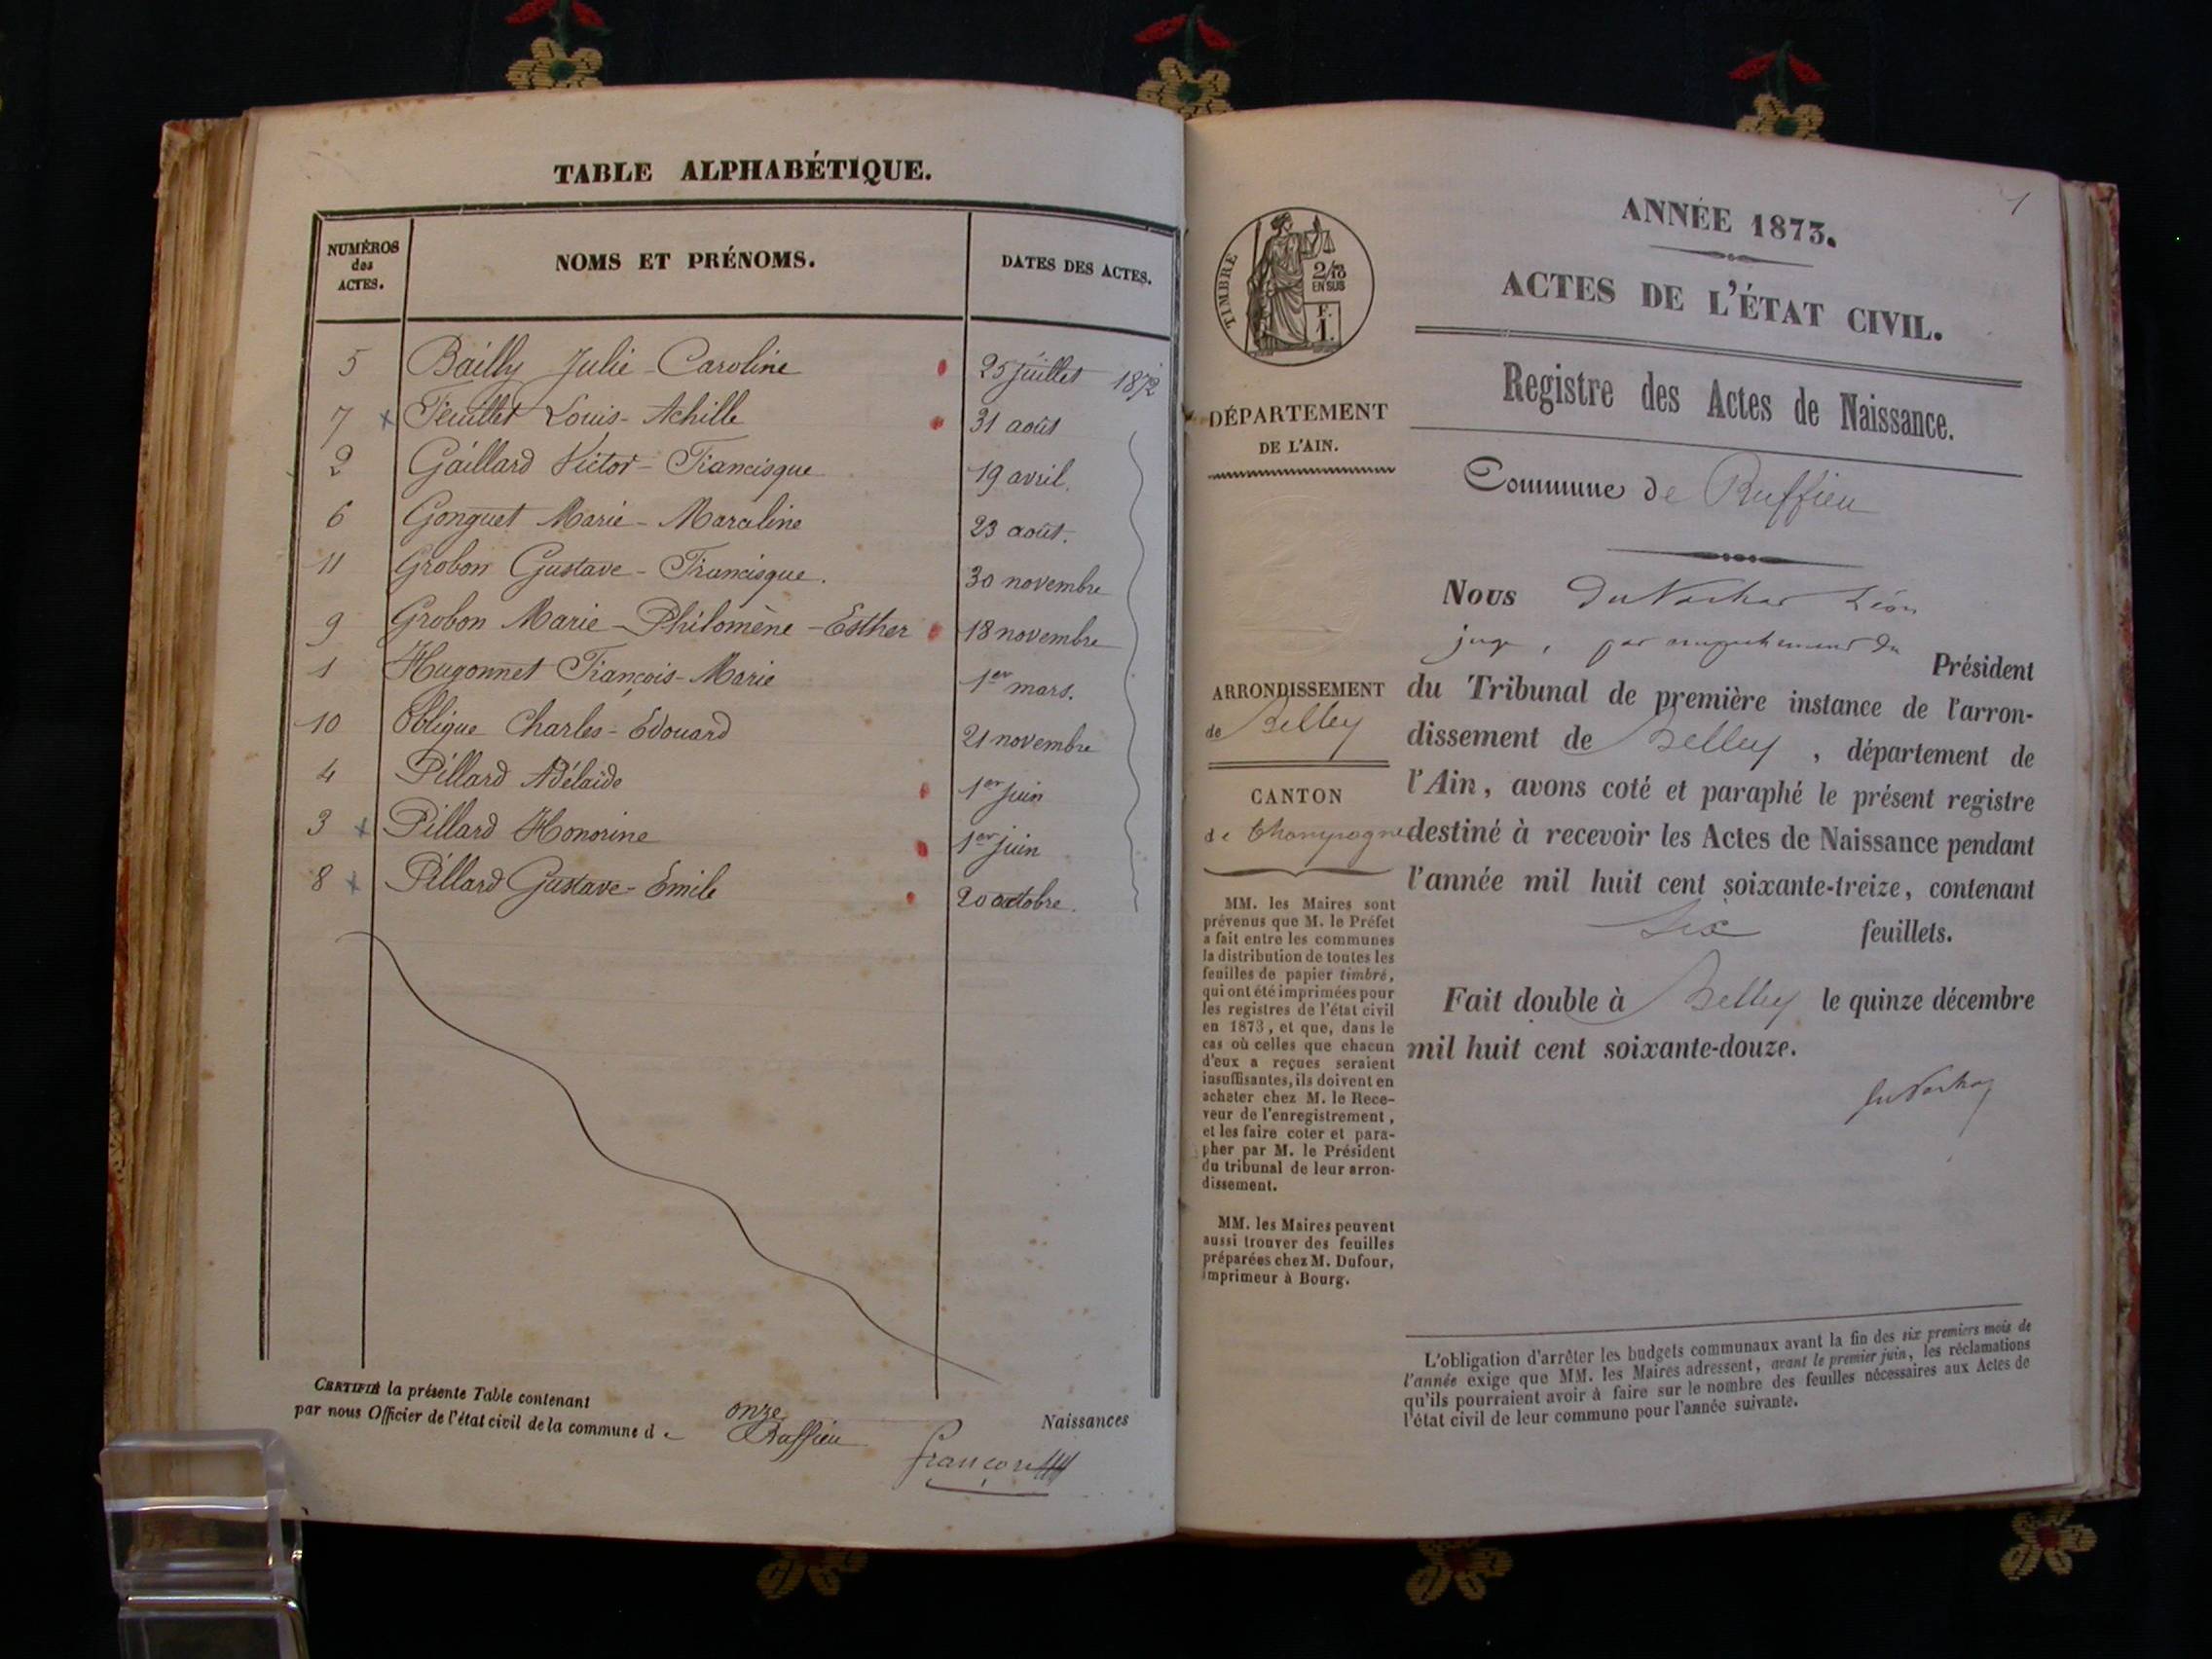 TABLE ALPHABÉTIQUE.
NUMÉROS des ACTES.
NOMS ET PRÉNOMS.
DATES DES ACTES.
5 Bailly Julie - Caroline 25 juillet 1872
7 Feuillet Louis - Achille 31 août
2 Gaillard Victor - Francisque 19 avril.
6 Gonguet Marie - Marceline 23 août.
11 Grobon Gustave - Francisque. 30 novembre
9 Grobon Marie - Philomène - Esther 18 novembre
1 Hugonnet François - Marie 1er mars.
10 Oblique Charles - Edouard 21 novembre
4 Pillard Adélaïde 1er juin
3 Pillard Honorine 1er juin
8 Pillard Gustave - Emile 20 octobre.
CERTIFIÉ la présente Table contenant onze Naissances
par nous Officier de l'état civil de la commune de Ruffieu
1
ANNÉE 1873.
ACTES DE L'ÉTAT CIVIL.
Registre des Actes de Naissance.
Commune de Ruffieu
TIMBRE
2/10
EN SUS
F.
1.
DÉPARTEMENT
DE L'AIN.
ARRONDISSEMENT
de Belley
CANTON
de Champagne
MM. les Maires sont
prévenus que M. le Préfet
a fait entre les communes
la distribution de toutes les
feuilles de papier timbré,
qui ont été imprimées pour
les registres de l'état civil
en 1873, et que, dans le
cas où celles que chacun
d'eux a reçues seraient
insuffisantes, ils doivent en
acheter chez M. le Rece-
veur de l'enregistrement,
et les faire coter et para-
pher par M. le Président
du tribunal de leur arron-
dissement.
MM. les Maires peuvent
aussi trouver des feuilles
préparées chez M. Dufour,
imprimeur à Bourg.
Nous Léon
juge, par empêchement du Président
du Tribunal de première instance de l'arron-
dissement de Belley, département de
l'Ain, avons coté et paraphé le présent registre
destiné à recevoir les Actes de Naissance pendant
l'année mil huit cent soixante-treize, contenant
six feuillets.
Fait double à Belley le quinze décembre
mil huit cent soixante-douze.
L'obligation d'arrêter les budgets communaux avant la fin des six premiers mois de
l'année exige que MM. les Maires adressent, avant le premier juin, les réclamations
qu'ils pourraient avoir à faire sur le nombre des feuilles nécessaires aux Actes de
l'état civil de leur commune pour l'année suivante.